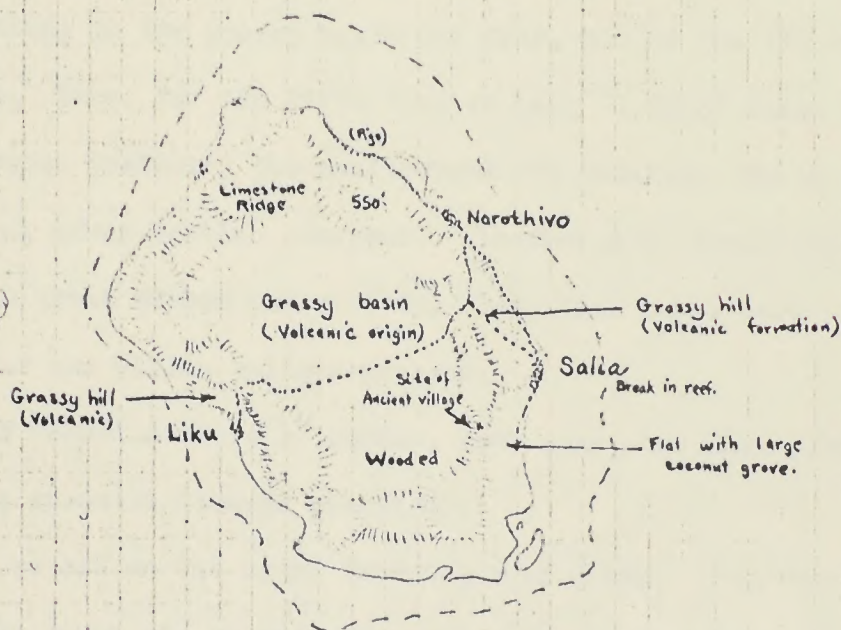 (Rigo)
Limestone
Ridge
550'
Narothivo
Grassy basin
(Volcanic origin)
Grassy hill
(Volcanic formation)
Salia
Break in reef.
Site of
Ancient village
Grassy hill
(Volcanic)
Liku
Wooded
Flat with large
coconut grove.